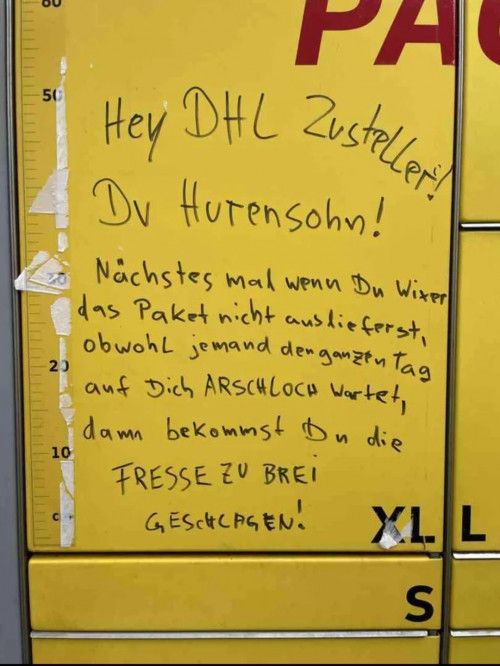 60
PAC
50
Hey DHL Zusteller!
Du Hurensohn!
Nächstes mal wenn Du Wixer
das Paket nicht auslieferst,
obwohl jemand den ganzen Tag
20
auf Dich ARSCHLOCH wartet,
dann bekommst Du die
10
FRESSE ZU BREI
GESCHLAGEN!
XL L
S